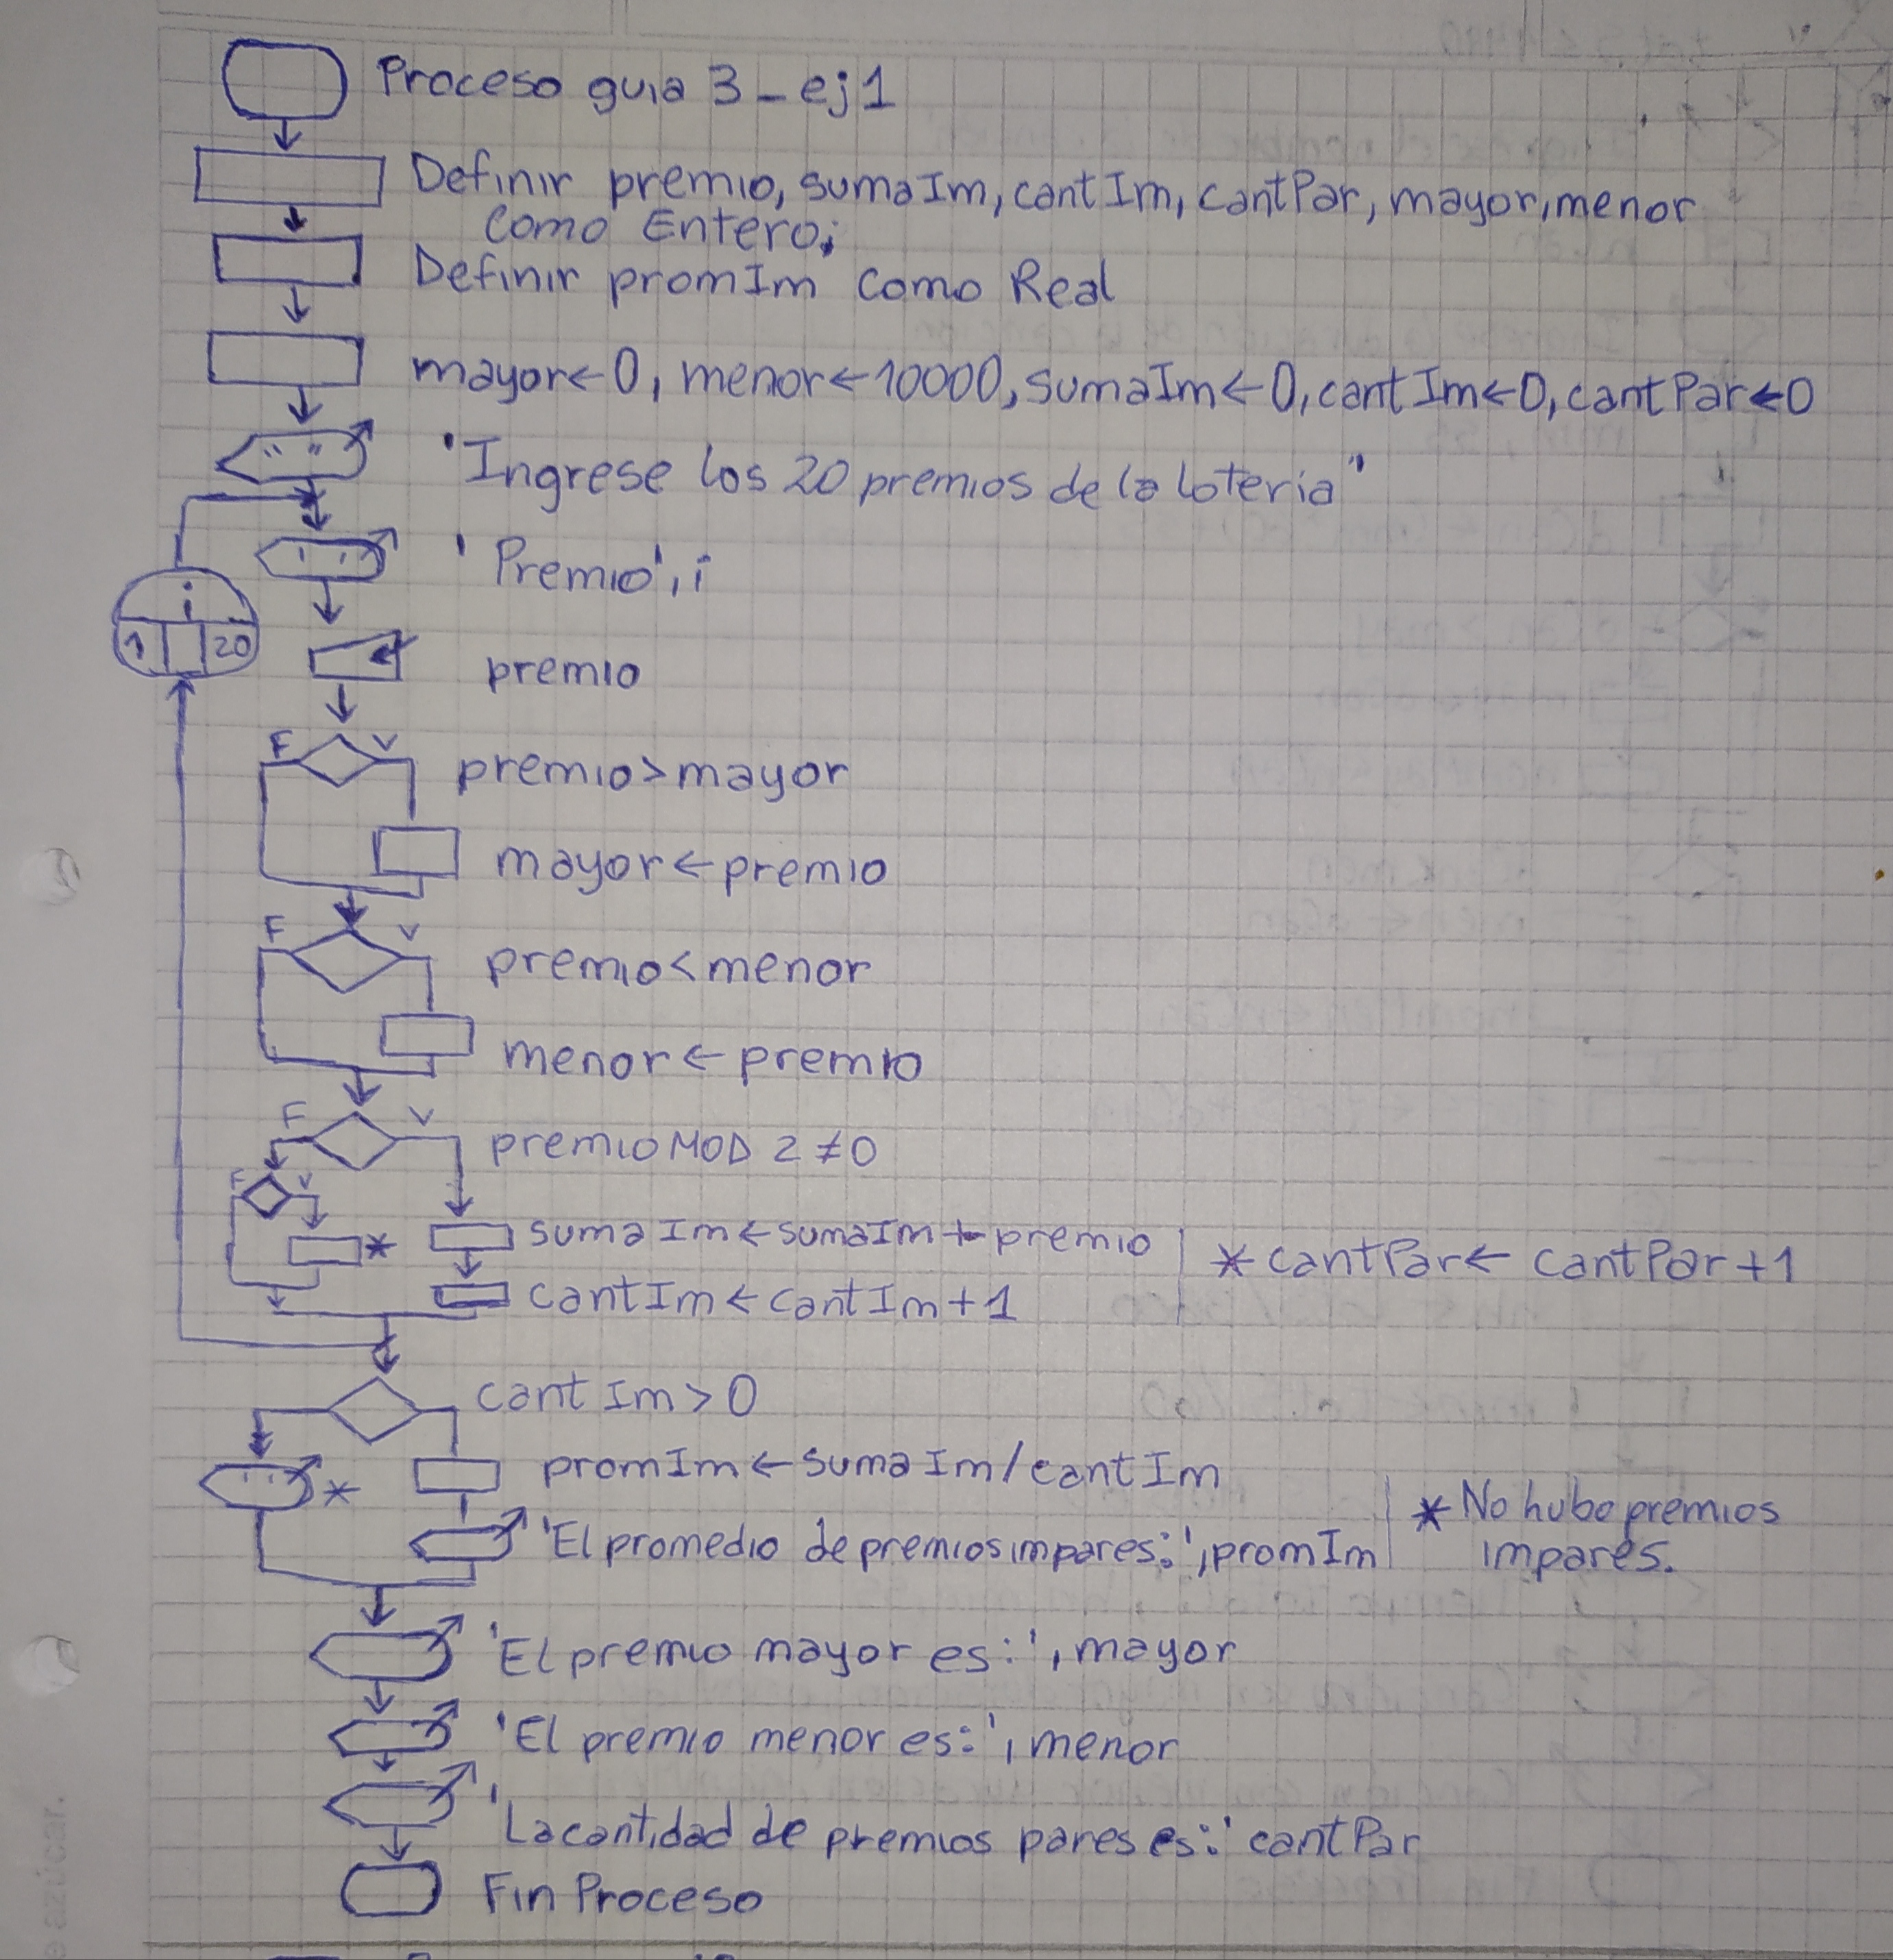 Proceso guia 3_ej1
Definir premio, sumaIm, cantIm, cantPar, mayor, menor
como Entero;
Definir promIm como Real
mayor←0, menor←10000, sumaIm←0, cantIm←0, cantPar←0
" "
"Ingrese los 20 premios de la loteria"
' '
'Premio', i
i
1 20
premio
F V
premio>mayor
mayor←premio
F V
premio<menor
menor←premio
F V
premio MOD 2 ≠0
F V
* sumaIm←sumaIm+premio | * cantPar← cantPar+1
cantIm←cantIm+1
cantIm>0
promIm←sumaIm/cantIm
' ' * | * No hubo premios
'El promedio de premios impares:', promIm impares.
'El premio mayor es:', mayor
'El premio menor es:', menor
'La cantidad de premios pares es:' cantPar
Fin Proceso